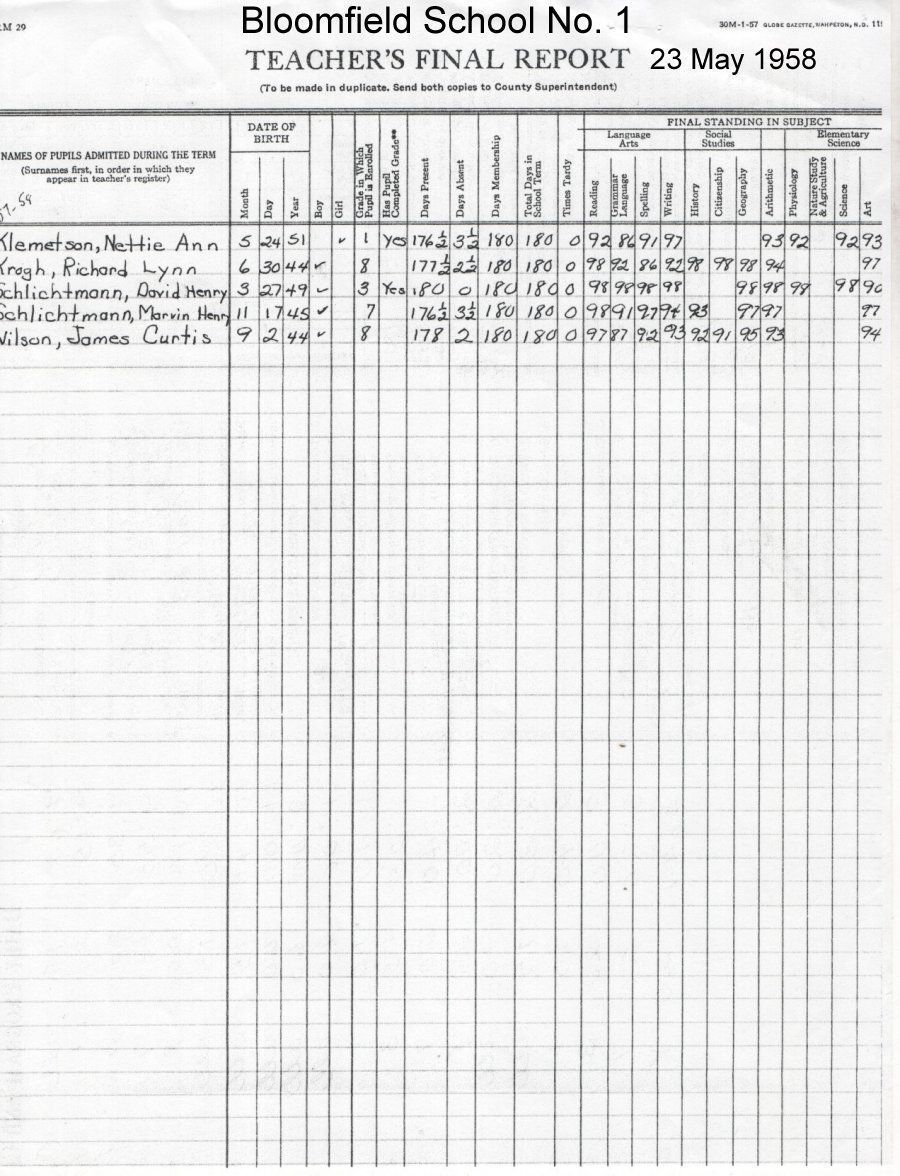 Bloomfield School No. 1
M 29
30M-1-57 GLOBE GAZETTE, WAHPETON, N.D. 11
TEACHER'S FINAL REPORT 23 May 1958
(To be made in duplicate. Send both copies to County Superintendent)
NAMES OF PUPILS ADMITTED DURING THE TERM
(Surnames first, in order in which they
appear in teacher's register)
DATE OF
BIRTH
Month
Day
Year
Boy
Girl
Grade in Which
Pupil is Enrolled
Has Pupil
Completed Grade**
Days Present
Days Absent
Days Membership
Total Days in
School Term
Times Tardy
FINAL STANDING IN SUBJECT
Language
Arts
Social
Studies
Elementary
Science
Reading
Grammar
Language
Spelling
Writing
History
Citizenship
Geography
Arithmetic
Physiology
Nature Study
& Agriculture
Science
Art
Klemetson, Nettie Ann 5 24 51 ✓ 1 Yes 176½ 3½ 180 180 0 92 86 91 97 93 92 92 93
Krogh, Richard Lynn 6 30 44 ✓ 8 177½ 2½ 180 180 0 98 92 86 92 98 98 98 94 97
Schlichtmann, David Henry 3 27 49 ✓ 3 Yes 180 0 180 180 0 98 98 98 98 98 98 98 98 90
Schlichtmann, Marvin Henry 11 17 45 ✓ 7 176½ 3½ 180 180 0 98 91 97 94 93 97 97 97
Wilson, James Curtis 9 2 44 ✓ 8 178 2 180 180 0 97 87 92 93 92 91 95 93 94